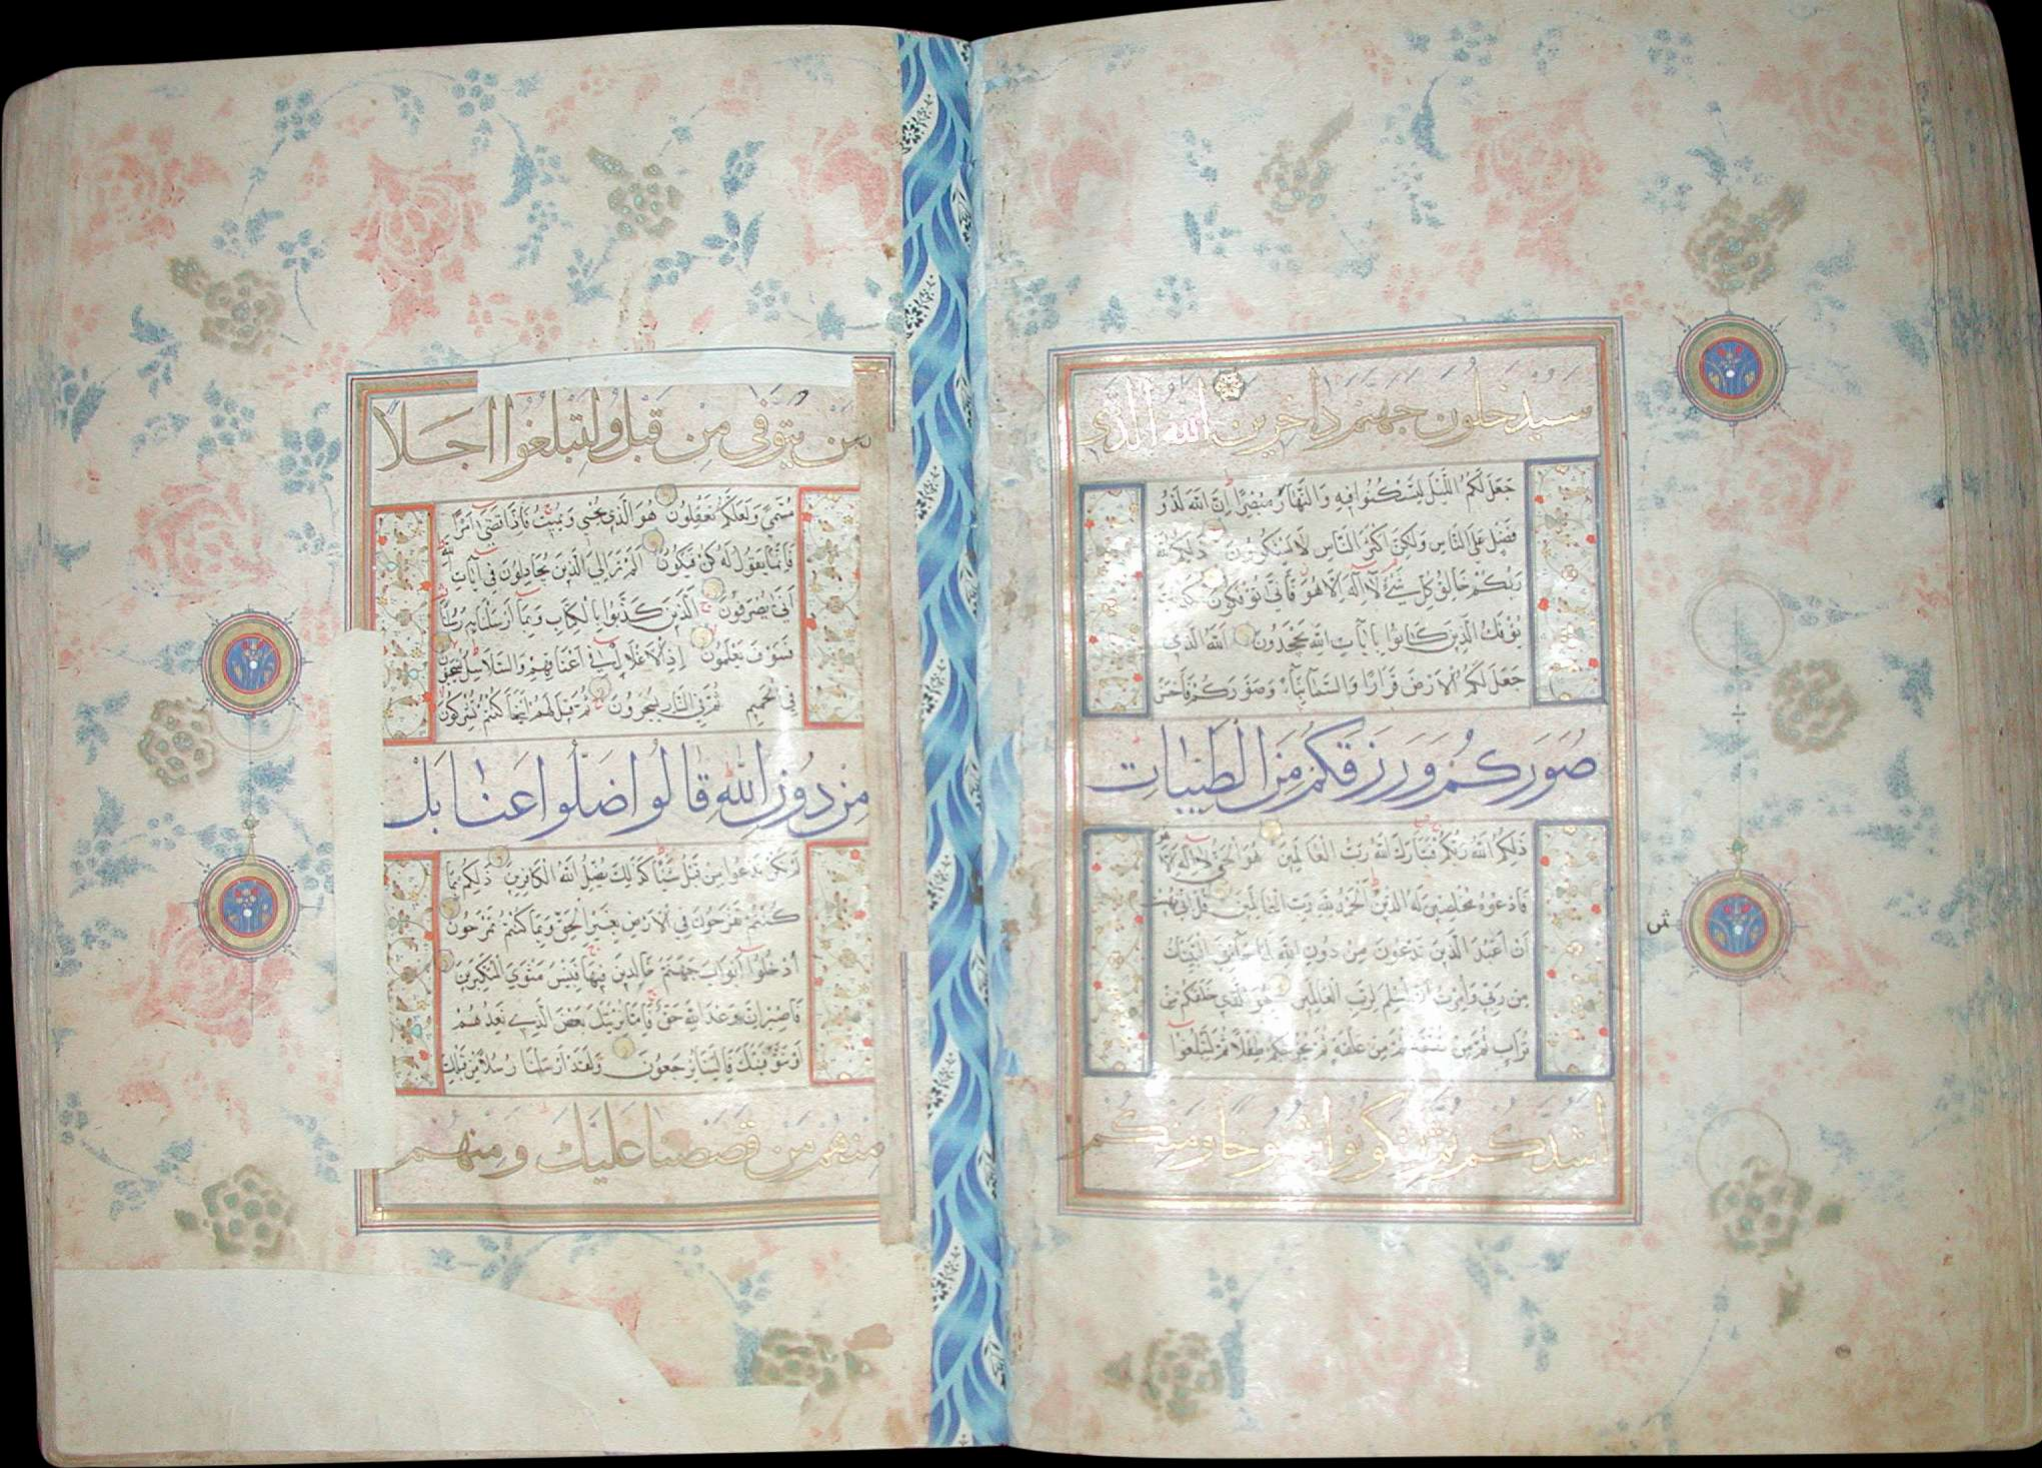 سيدخلون جهنم داخرين الله الذي
جعل لكم الليل لتسكنوا فيه والنهار مبصرا إن الله لذو
فضل على الناس ولكن أكثر الناس لا يشكرون ذلكم الله
ربكم خالق كل شيء لا إله إلا هو فأنى تؤفكون كذلك
يؤفك الذين كانوا بآيات الله يجحدون الله الذي
جعل لكم الأرض قرارا والسماء بناء وصوركم فأحسن
صوركم ورزقكم من الطيبات
ذلكم الله ربكم فتبارك الله رب العالمين هو الحي لا إله إلا هو
فادعوه مخلصين له الدين الحمد لله رب العالمين قل إني نهيت
أن أعبد الذين تدعون من دون الله لما جاءني البينات
من ربي وأمرت أن أسلم لرب العالمين هو الذي خلقكم من
تراب ثم من نطفة ثم من علقة ثم يخرجكم طفلا ثم لتبلغوا
أشدكم ثم لتكونوا شيوخا ومنكم
من يتوفى من قبل ولتبلغوا أجلا
مسمى ولعلكم تعقلون هو الذي يحيي ويميت فإذا قضى أمرا
فإنما يقول له كن فيكون ألم تر إلى الذين يجادلون في آيات الله
أنى يصرفون الذين كذبوا بالكتاب وبما أرسلنا به رسلنا
فسوف يعلمون إذ الأغلال في أعناقهم والسلاسل يسحبون
في الحميم ثم في النار يسجرون ثم قيل لهم أينما كنتم تشركون
من دون الله قالوا ضلوا عنا بل
لم نكن ندعوا من قبل شيئا كذلك يضل الله الكافرين ذلكم بما
كنتم تفرحون في الأرض بغير الحق وبما كنتم تمرحون
أدخلوا أبواب جهنم خالدين فيها فبئس مثوى المتكبرين
فاصبر إن وعد الله حق فإما نرينك بعض الذي نعدهم
أو نتوفينك فإلينا يرجعون ولقد أرسلنا رسلا من قبلك
منهم من قصصنا عليك ومنهم